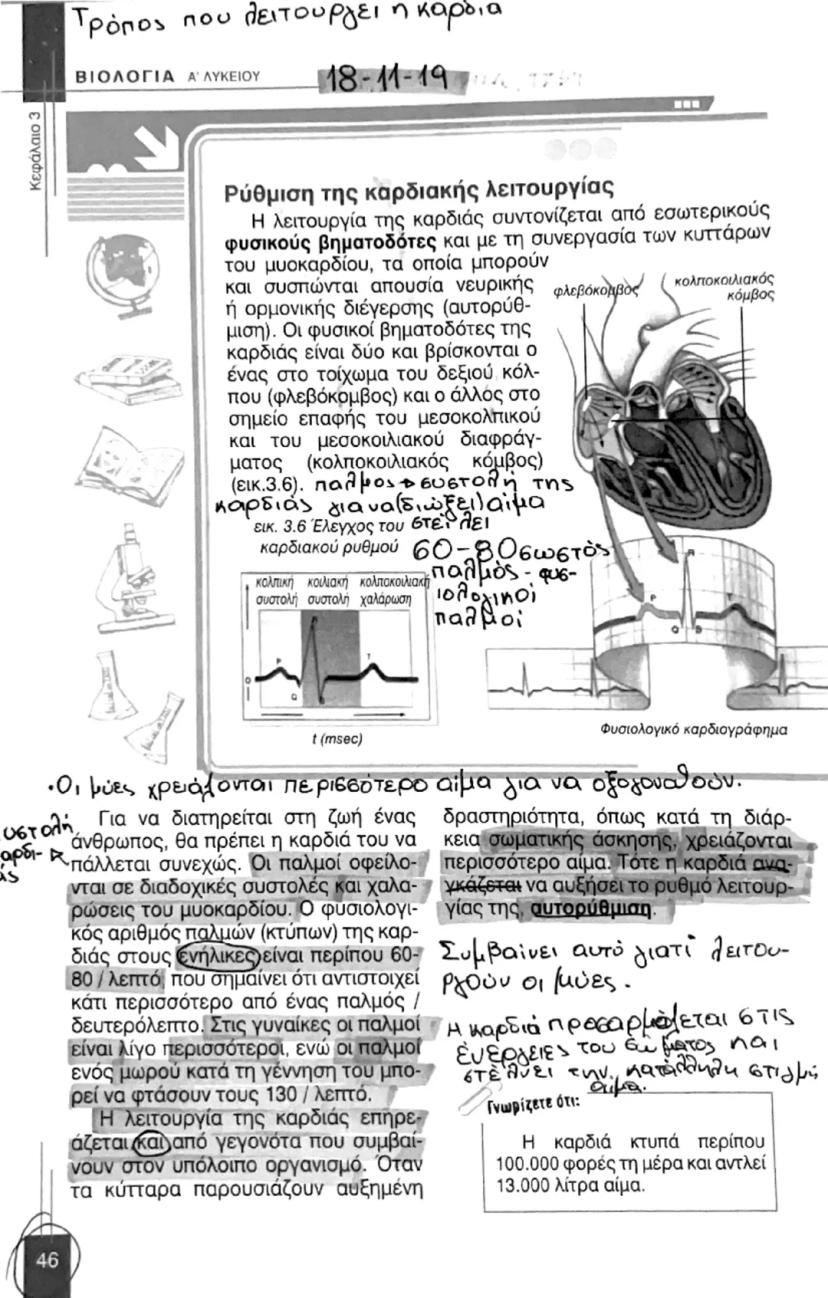 Τρόπος που λειτουργεί η καρδιά
ΒΙΟΛΟΓΙΑ Α' ΛΥΚΕΙΟΥ
18-11-19
Κεφάλαιο 3
Ρύθμιση της καρδιακής λειτουργίας
Η λειτουργία της καρδιάς συντονίζεται από εσωτερικούς
φυσικούς βηματοδότες και με τη συνεργασία των κυττάρων
του μυοκαρδίου, τα οποία μπορούν
και συσπώνται απουσία νευρικής
ή ορμονικής διέγερσης (αυτορύθ-
μιση). Οι φυσικοί βηματοδότες της
καρδιάς είναι δύο και βρίσκονται ο
ένας στο τοίχωμα του δεξιού κόλ-
που (φλεβόκομβος) και ο άλλος στο
σημείο επαφής του μεσοκολπικού
και του μεσοκοιλιακού διαφράγ-
ματος (κολποκοιλιακός κόμβος)
(εικ.3.6).
παλμος→συστολή της
καρδιάς για να(διώξει)αίμα
στείλει
φλεβόκομβος
κολποκοιλιακός
κόμβος
εικ. 3.6 Έλεγχος του
καρδιακού ρυθμού
60-80 σωστός
παλμός - φυσ-
ιολογικοί
παλμοί
κολπική κοιλιακή κολποκοιλιακή
συστολή συστολή χαλάρωση
P
R
T
0
Q
S
t (msec)
R
P
T
Q S
Φυσιολογικό καρδιογράφημα
•Οι μύες χρειάζονται περισσότερο αίμα για να οξυγονωθούν.
Για να διατηρείται στη ζωή ένας
άνθρωπος, θα πρέπει η καρδιά του να
πάλλεται συνεχώς. Οι παλμοί οφείλο-
νται σε διαδοχικές συστολές και χαλα-
ρώσεις του μυοκαρδίου. Ο φυσιολογι-
κός αριθμός παλμών (κτύπων) της καρ-
διάς στους ενήλικες είναι περίπου 60-
80 / λεπτό, που σημαίνει ότι αντιστοιχεί
κάτι περισσότερο από ένας παλμός /
δευτερόλεπτο. Στις γυναίκες οι παλμοί
είναι λίγο περισσότεροι, ενώ οι παλμοί
ενός μωρού κατά τη γέννηση του μπο-
ρεί να φτάσουν τους 130 / λεπτό.
Η λειτουργία της καρδιάς επηρε-
άζεται και από γεγονότα που συμβαί-
νουν στον υπόλοιπο οργανισμό. Όταν
τα κύτταρα παρουσιάζουν αυξημένη
δραστηριότητα, όπως κατά τη διάρ-
κεια σωματικής άσκησης, χρειάζονται
περισσότερο αίμα. Τότε η καρδιά ανα-
γκάζεται να αυξήσει το ρυθμό λειτουρ-
γίας της, αυτορύθμιση.
Συμβαίνει αυτό γιατί λειτου-
ργούν οι μύες.
Η καρδιά προσαρμόζεται στις
ενέργειες του σώματος και
στέλνει την κατάλληλη στιγμή
αίμα.
Γνωρίζετε ότι:
Η καρδιά κτυπά περίπου
100.000 φορές τη μέρα και αντλεί
13.000 λίτρα αίμα.
46